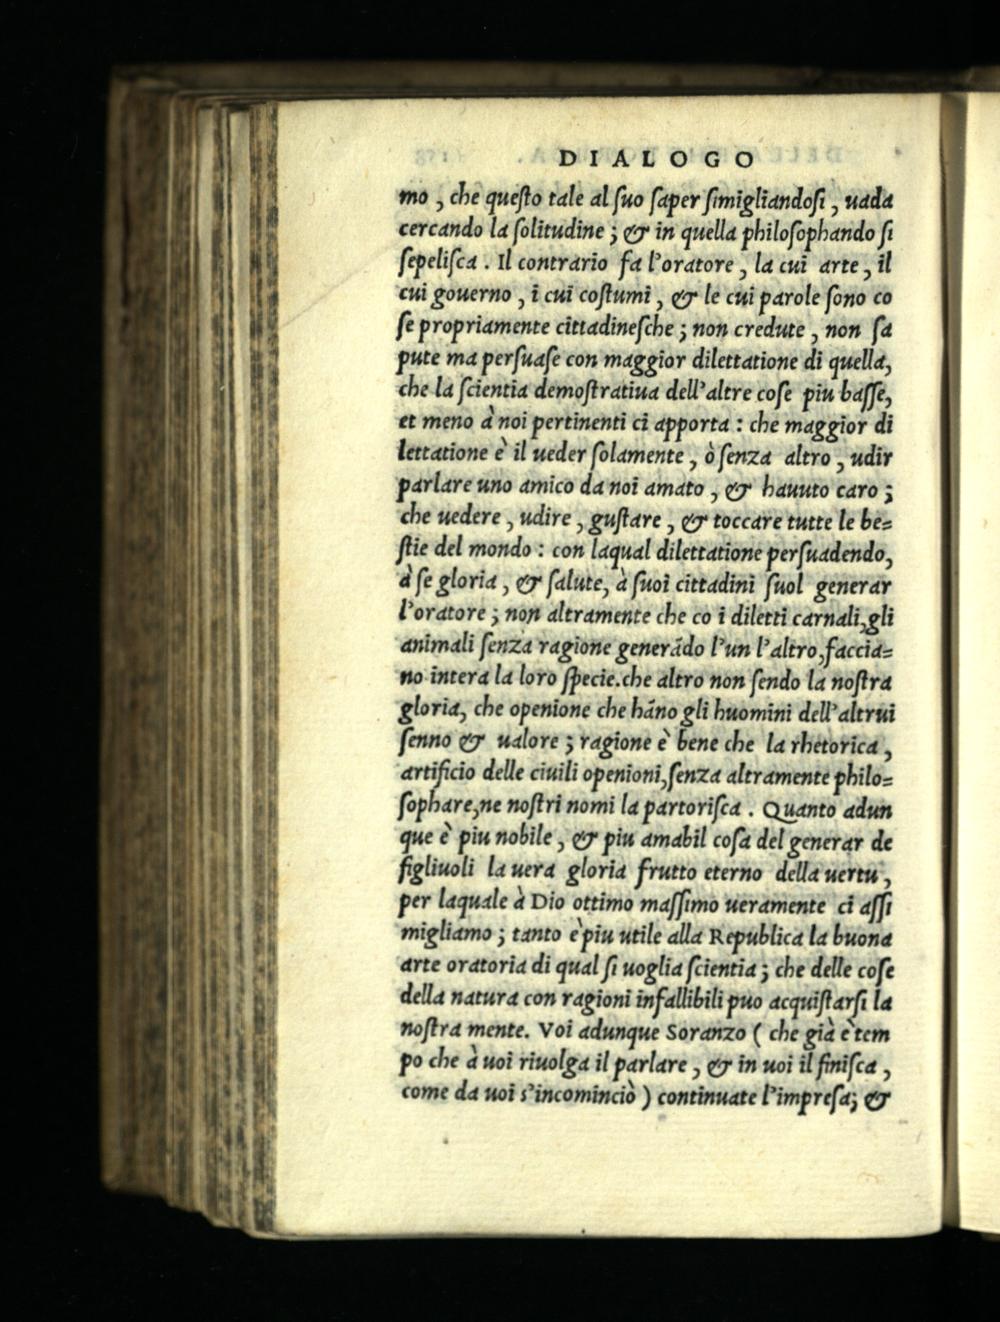 DIALOGO
mo, che queſto tale al ſuo ſaper ſimigliandoſi, uada
cercando la ſolitudine; & in quella philoſophando ſi
ſepeliſca. Il contrario fa l'oratore, la cui arte, il
cui gouerno, i cui coſtumi, & le cui parole ſono co
ſe propriamente cittadineſche; non credute, non ſa
pute ma perſuaſe con maggior dilettatione di quella,
che la ſcientia demoſtratiua dell'altre coſe piu baſſe,
et meno à noi pertinenti ci apporta: che maggior di
lettatione è il ueder ſolamente, ò ſenza altro, udir
parlare uno amico da noi amato, & hauuto caro;
che uedere, udire, guſtare, & toccare tutte le be=
ſtie del mondo: con laqual dilettatione perſuadendo,
à ſe gloria, & ſalute, à ſuoi cittadini ſuol generar
l'oratore; non altramente che co i diletti carnali, gli
animali ſenza ragione generādo l'un l'altro, faccia=
no intera la loro ſpecie. che altro non ſendo la noſtra
gloria, che openione che hāno gli huomini dell'altrui
ſenno & ualore; ragione è bene che la rhetorica,
artificio delle ciuili openioni, ſenza altramente philo=
ſophare, ne noſtri nomi la partoriſca. Quanto adun
que è piu nobile, & piu amabil coſa del generar de
figliuoli la uera gloria frutto eterno della uertu,
per laquale à Dio ottimo maſſimo ueramente ci aſſi
migliamo; tanto è piu utile alla Republica la buona
arte oratoria di qual ſi uoglia ſcientia; che delle coſe
della natura con ragioni infallibili puo acquiſtarſi la
noſtra mente. Voi adunque Soranzo (che già è tem
po che à uoi riuolga il parlare, & in uoi il finiſca,
come da uoi s'incominciò) continuate l'impreſa; &